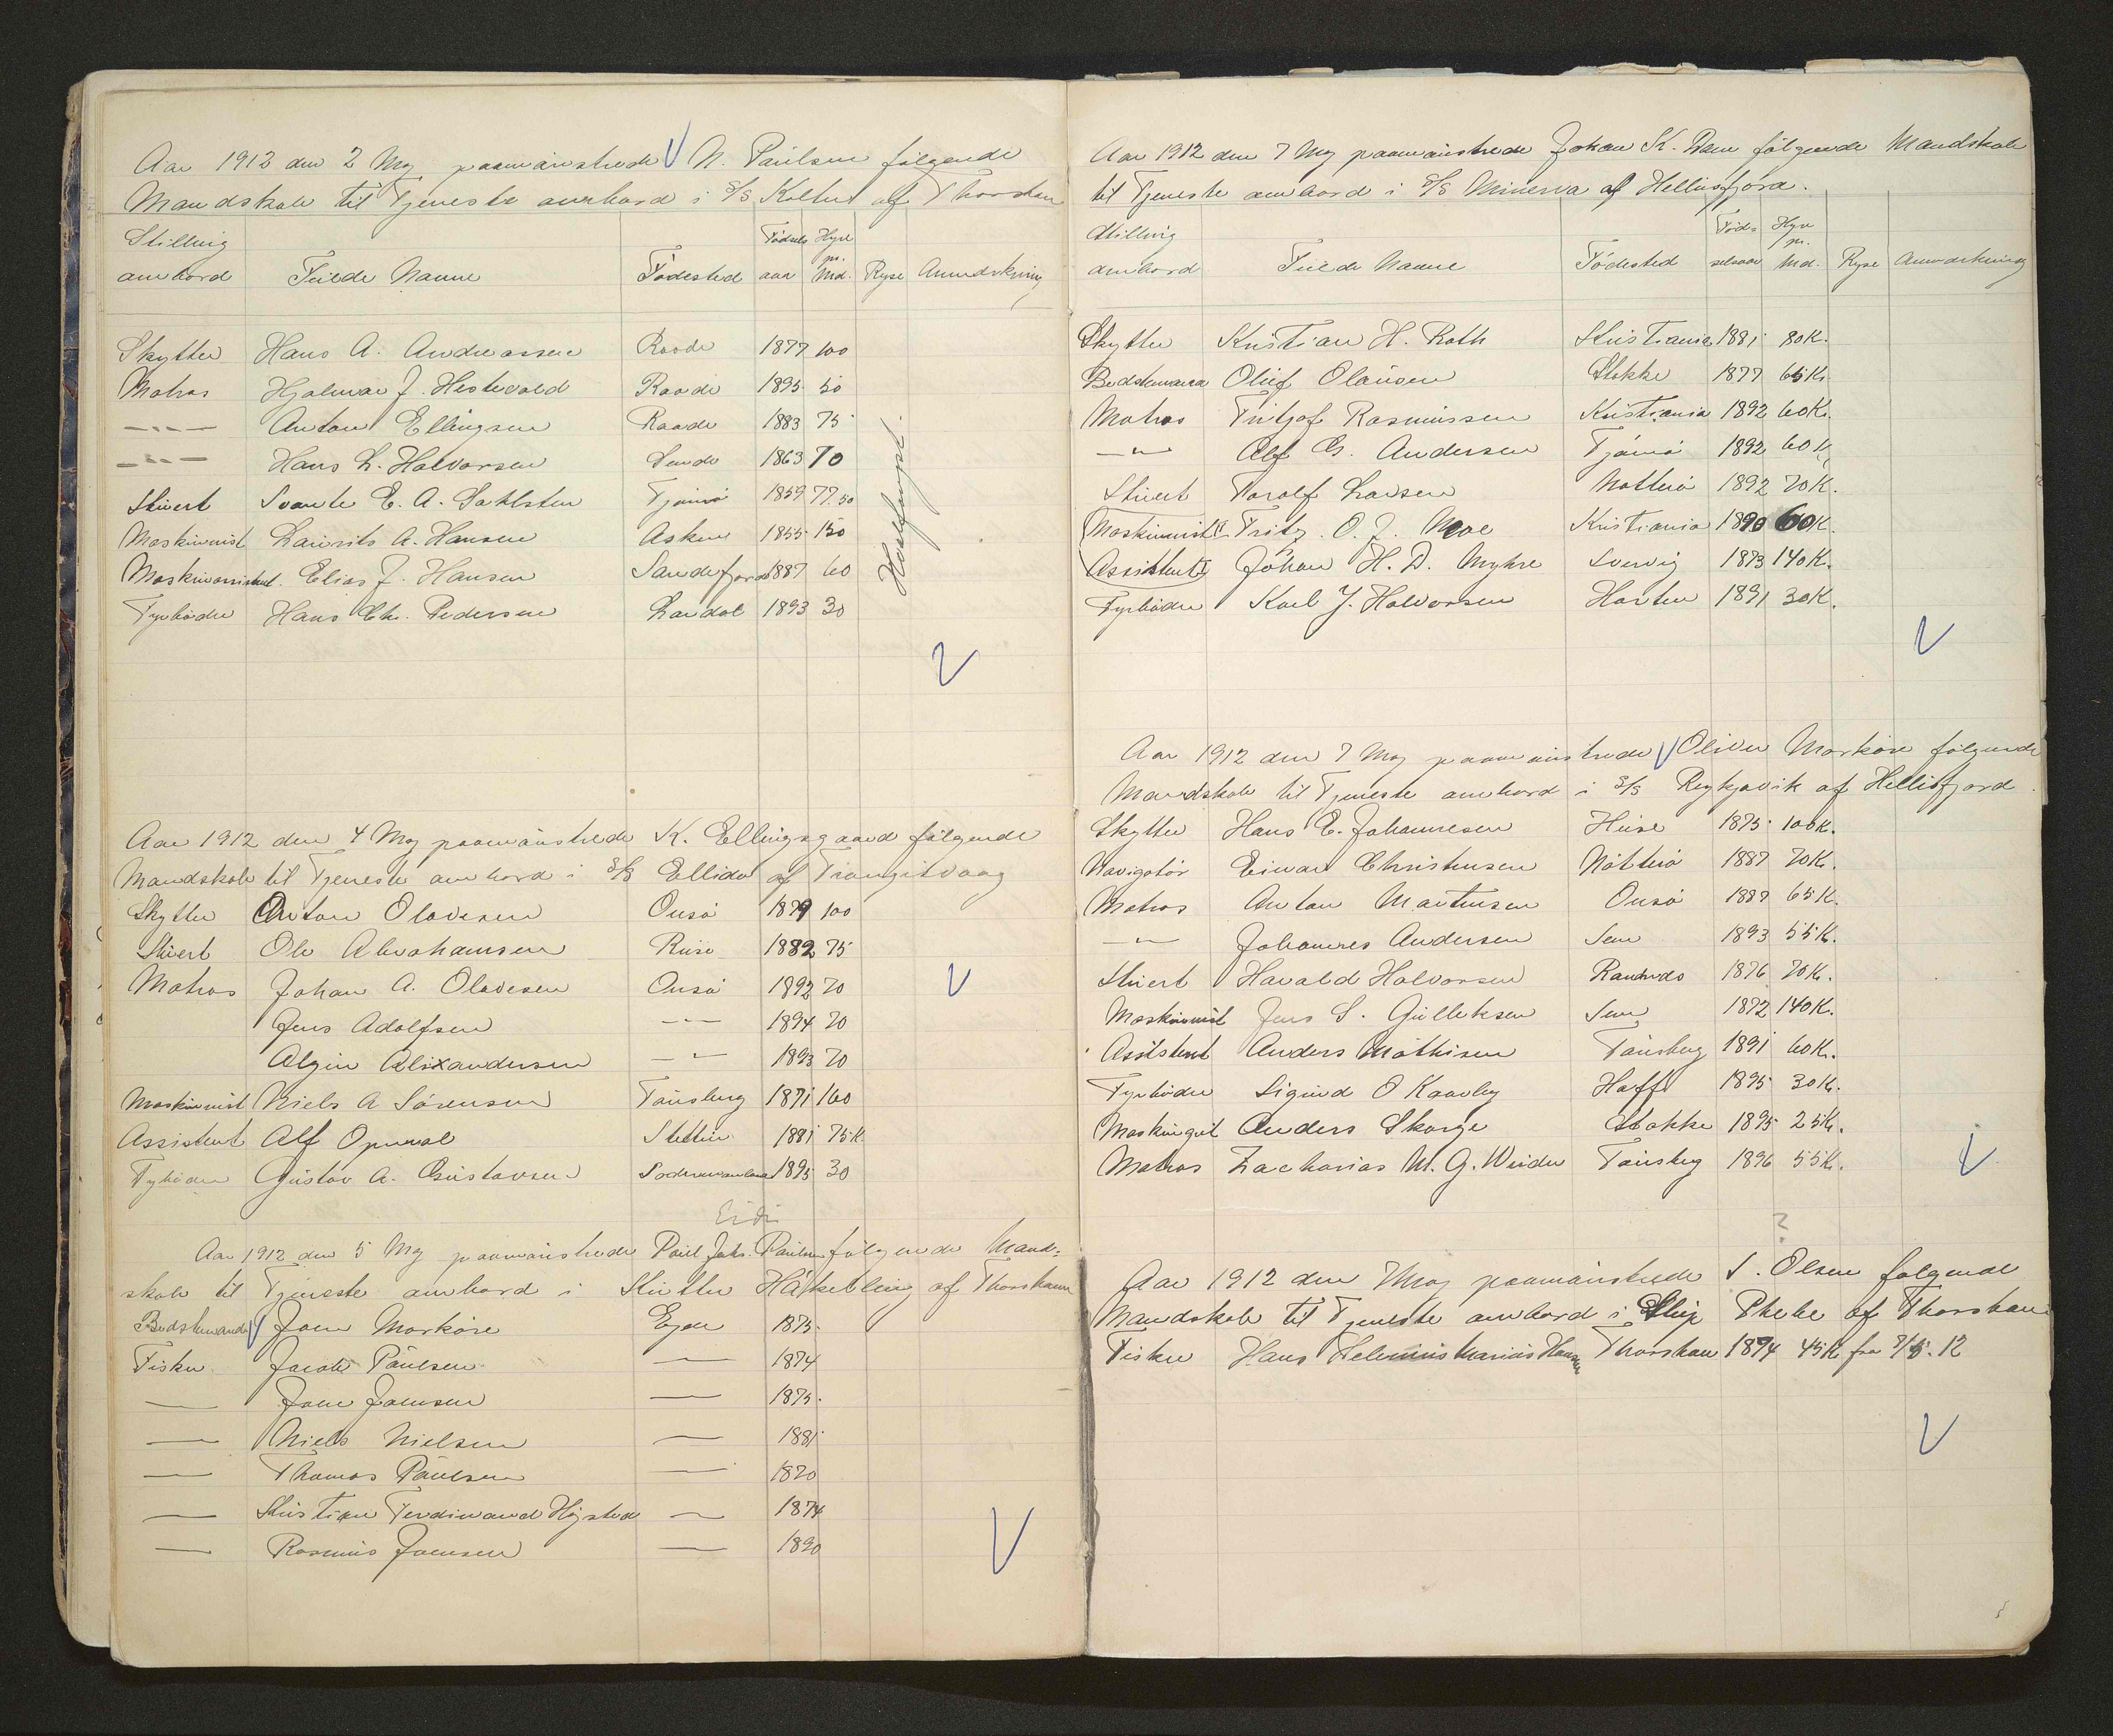 Aar 1912 den 2 Maj paamönstrede N. Paulsen følgende
Mandskab til Tjeneste ombord i S/S Koltur af Thorshavn
Stilling ombord Fulde Navne Fødested Fødsels aar Hyre pr. Md. Ryse Anmærkning
Skytter Hans A. Andreassen Raade 1877 100
Matros Hjalmar J. Hestevold Raade 1895 50
—"— Anton Ellingsen Raade 1883 75
—"— Hans L. Halvorsen Sende 1863 70
Stuert Svante E. A. Dahlsten Tjømø 1859 77.50
Maskinmist Laurits A. Hansen Asker 1855 150
Maskinassistent Elias J. Hansen Sandefjord 1887 60
Fyrbøder Hans Chr. Pedersen Lardal 1893 30
Aar 1912 den 4 Maj paamönstrede K. Ellingsgaard følgende
Mandskab til Tjeneste ombord i S/S Ellida af Trangisvaag
Skytter Anton Olavesen Onsø 1879 100
Stuert Ole Abrahamsen Ruse 1882 75
Matros Johan A. Olavesen Onsø 1892 70
Jens Adolfsen —"— 1894 70
Algin Alixandersen —"— 1893 70
Maskinmist Niels A Sørensen Tønsberg 1871 160
Assistent Alf Opunval Stettin 1881 75K
Fybøder Gustav A. Gustavsen Sodermanland 1895 30
Eidi
Aar 1912 den 5 Maj paamönstrede Poul Johs. Paulsen følgende Mand=
skab til Tjeneste ombord i Kutter Háikebleug af Thorshavn
Bedstemand Joen Morkøre Ejde 1875
Fisker Jacob Paulsen — 1874
— Joen Joensen — 1875
— Niels Nielsen — 1881
— Thomas Paulsen — 1870
— Kristian Ferdinand Højsted — 1874
— Rasmus Joensen — 1890
Aar 1912 den 7 Maj paamönstrede Johan K. Dam følgende Mandskab
til Tjeneste ombord i S/S Minerva af Hellisfjord.
Stilling ombord Fulde Navne Fødested Fød= selsaar Hyre pr. Md. Ryse Anmærkning
Skytter Kristian H. Roth Kristiania 1881 80K.
Bedstemand Oluf Olausen Stokke 1877 65K.
Matros Fritjof Rasmussen Kristiania 1892 60K.
—"— Alf G. Andersen Tjømø 1892 60K
Stuert Torolf Larsen Nøtterø 1892 70K.
Maskinmist Fritz O. J. Moe Kristiania 1890 60K.
Assistent Johan H. D. Myhre Svervig 1873 140K.
Fyrbøder Karl J. Halvorsen Horten 1891 30K.
Aar 1912 den 7 Maj paamönstrede Oliver Morkøre følgende
Mandskab til Tjeneste ombord i S/S Reykjavik af Hellisfjord.
Skytter Hans E. Johannesen Huse 1875 100K.
Navigatør Einar Christensen Nøtterø 1887 70K.
Matros Anton Martinsen Onsø 1889 65K.
—"— Johannes Andersen Sem 1893 55K.
Stuert Harald Halvorsen Ramnes 1876 70K.
Maskinmist Jens S. Gulliksen Sem 1872 140K.
Assistent Anders Mathisen Tønsberg 1891 60K.
Fyrbøder Sigurd O Kaarby Haffs 1895 30K.
Maskingut Anders Skorge Stokke 1895 25K.
Matros Zacharias M. G. Winder Tønsberg 1896 55K.
?
Aar 1912 den Maj paamönstrede S. Olsen følgende
Mandskab til Tjeneste ombord i Slup Phebe af Thorshavn
Fisker Hans Heleminus Marius Hansen Thorshavn 1894 45K fra 7/5. 12